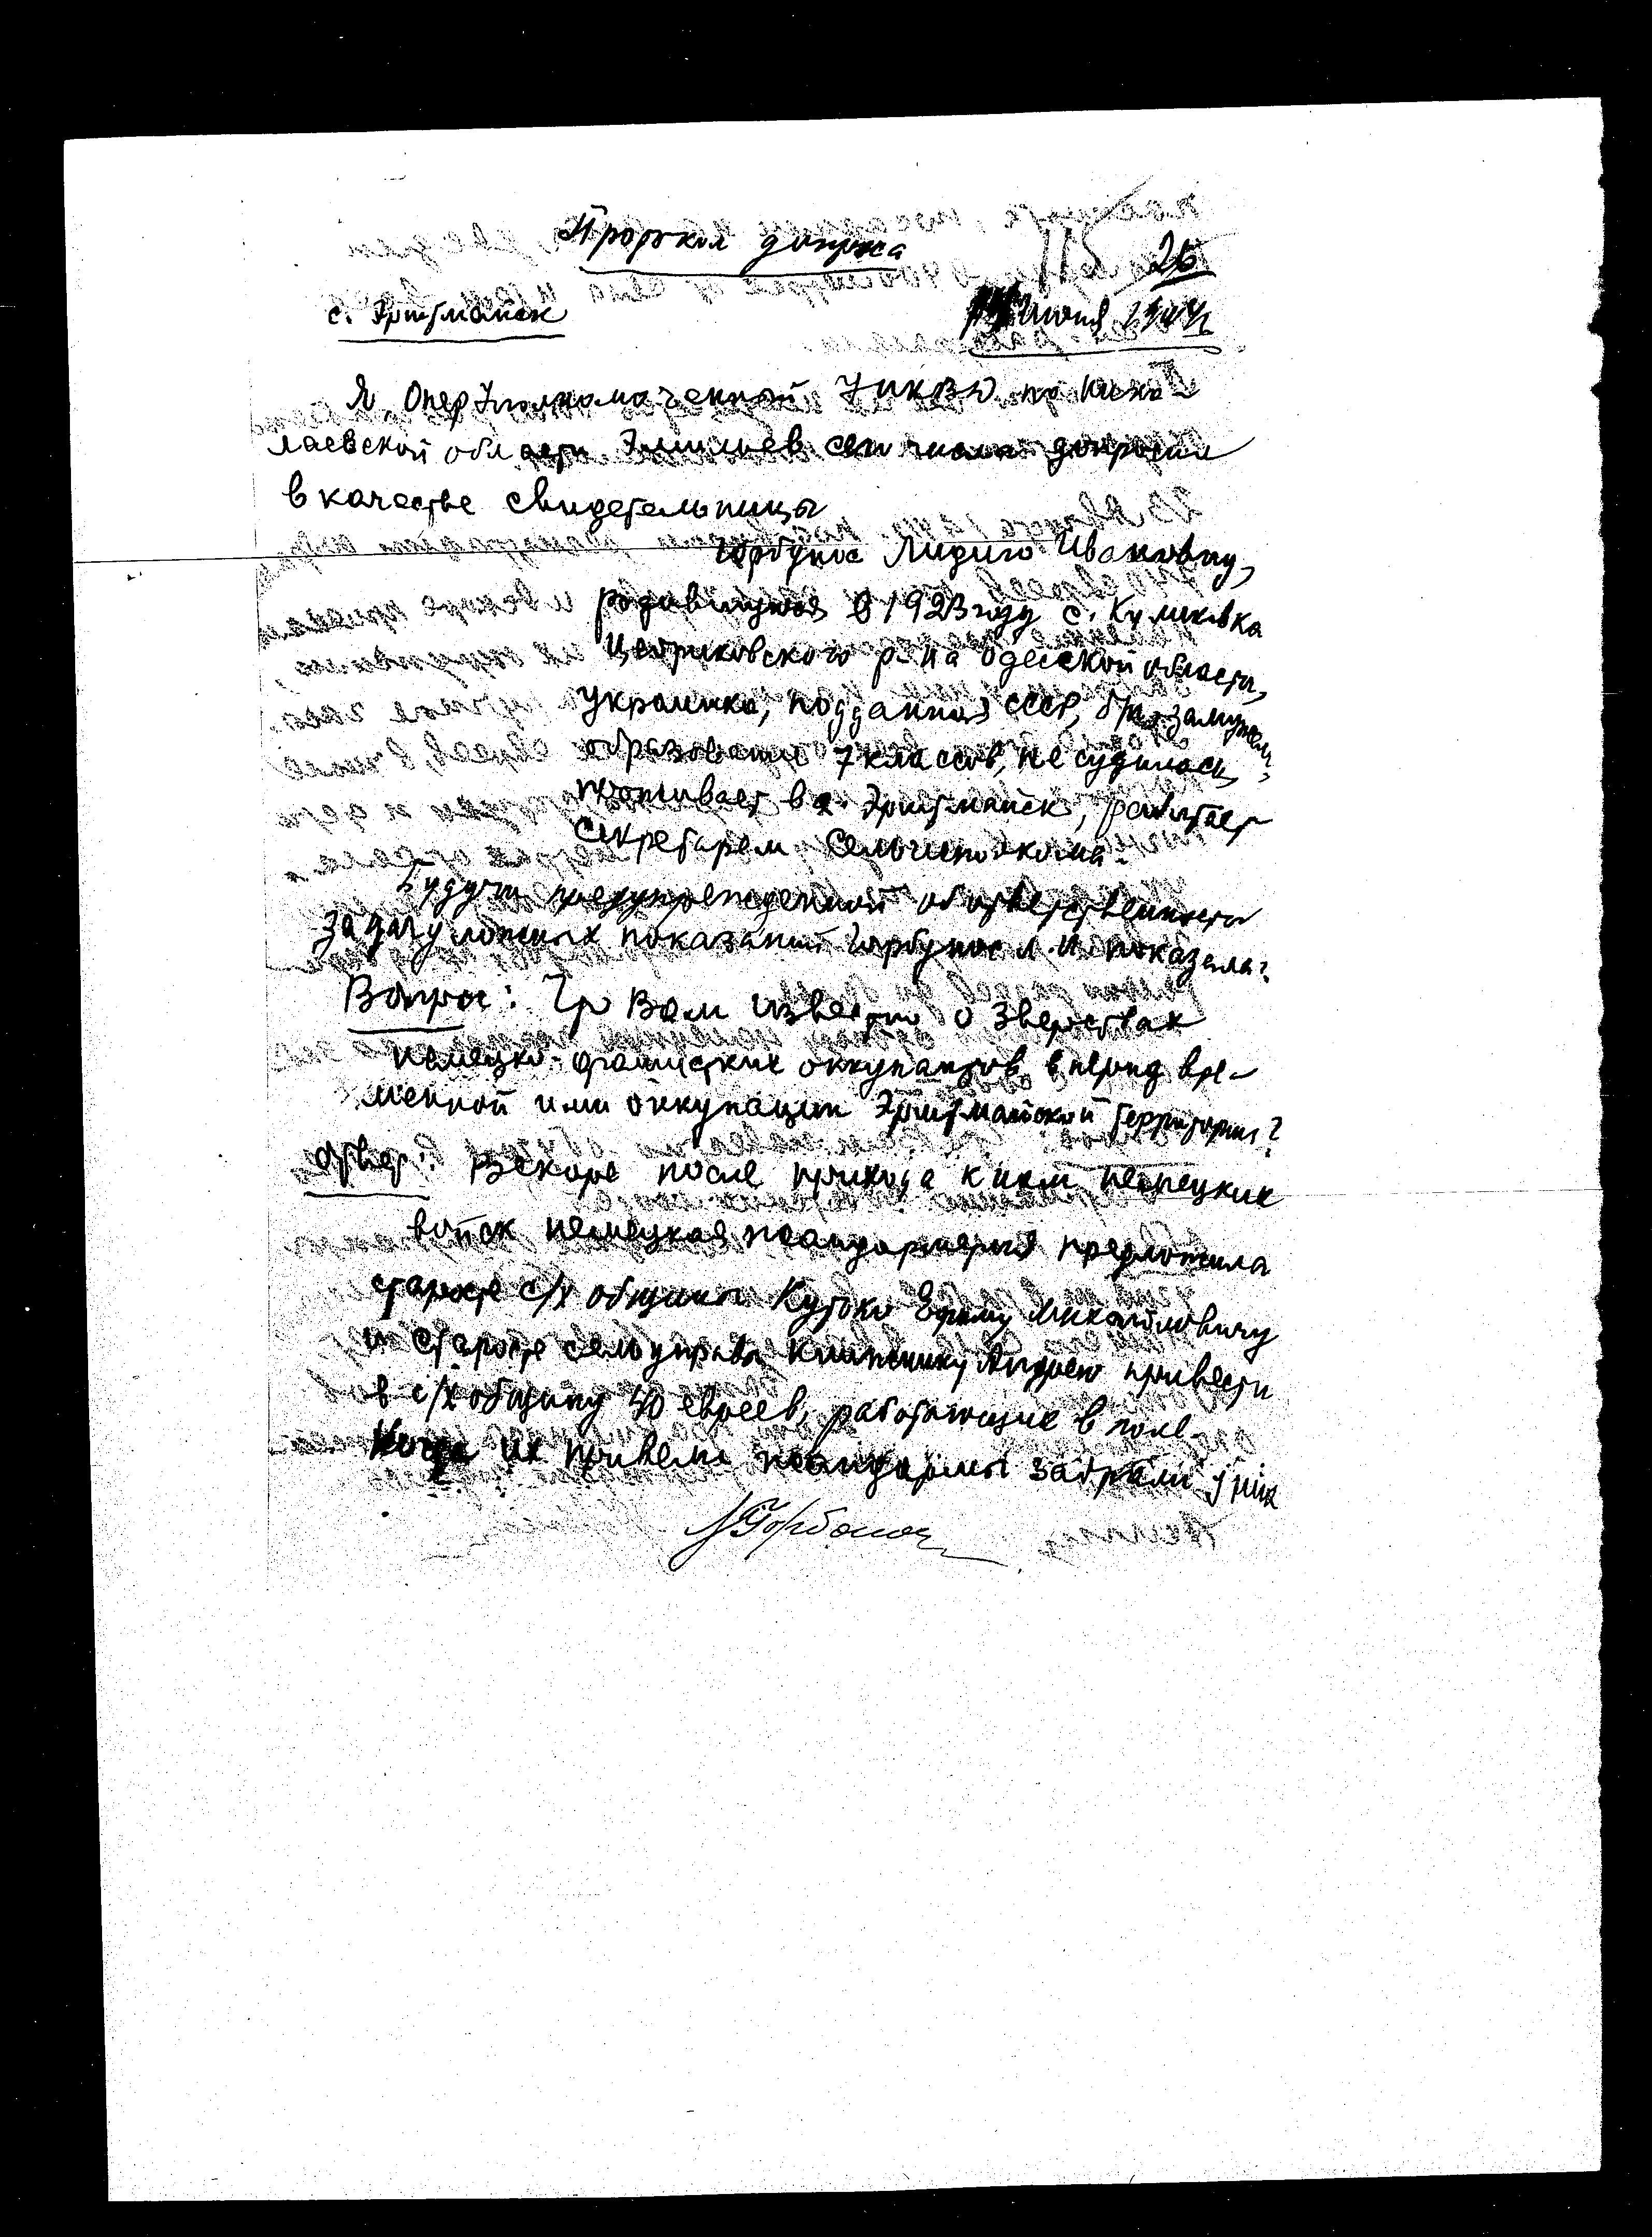 Протокол допроса
26
с. Эритмайск
июня 1944
Я, Оперуполномоченный УНКВД по Нико-
лаевской области сего числа допросил
в качестве свидетельницы
Лидию Ивановну,
родившуюся в 1923 году с. Куликовка
Цебриковского р-на Одесской области,
украинка, подданная СССР, б/п, замужем,
образование 7 классов, не судилась,
проживает в с. Эритмайск, работает
секретарем сельисполкома.
Будучи предупрежденной об ответственности
за дачу ложных показаний Л.И. показала:
Вопрос: Что Вам известно о зверствах
немецко-фашистких оккупантов в период вре-
менной ими оккупации Эритмайской территории?
Ответ: Вскоре после прихода к нам немецких
войск немецкая жандармерия предложила
старосте с/х общины Ефиму Михайловичу
и старосте сельуправы Андрею привести
в с/х общину 40 евреев, работающие в поле.
Когда их привели жандармы забрали у них